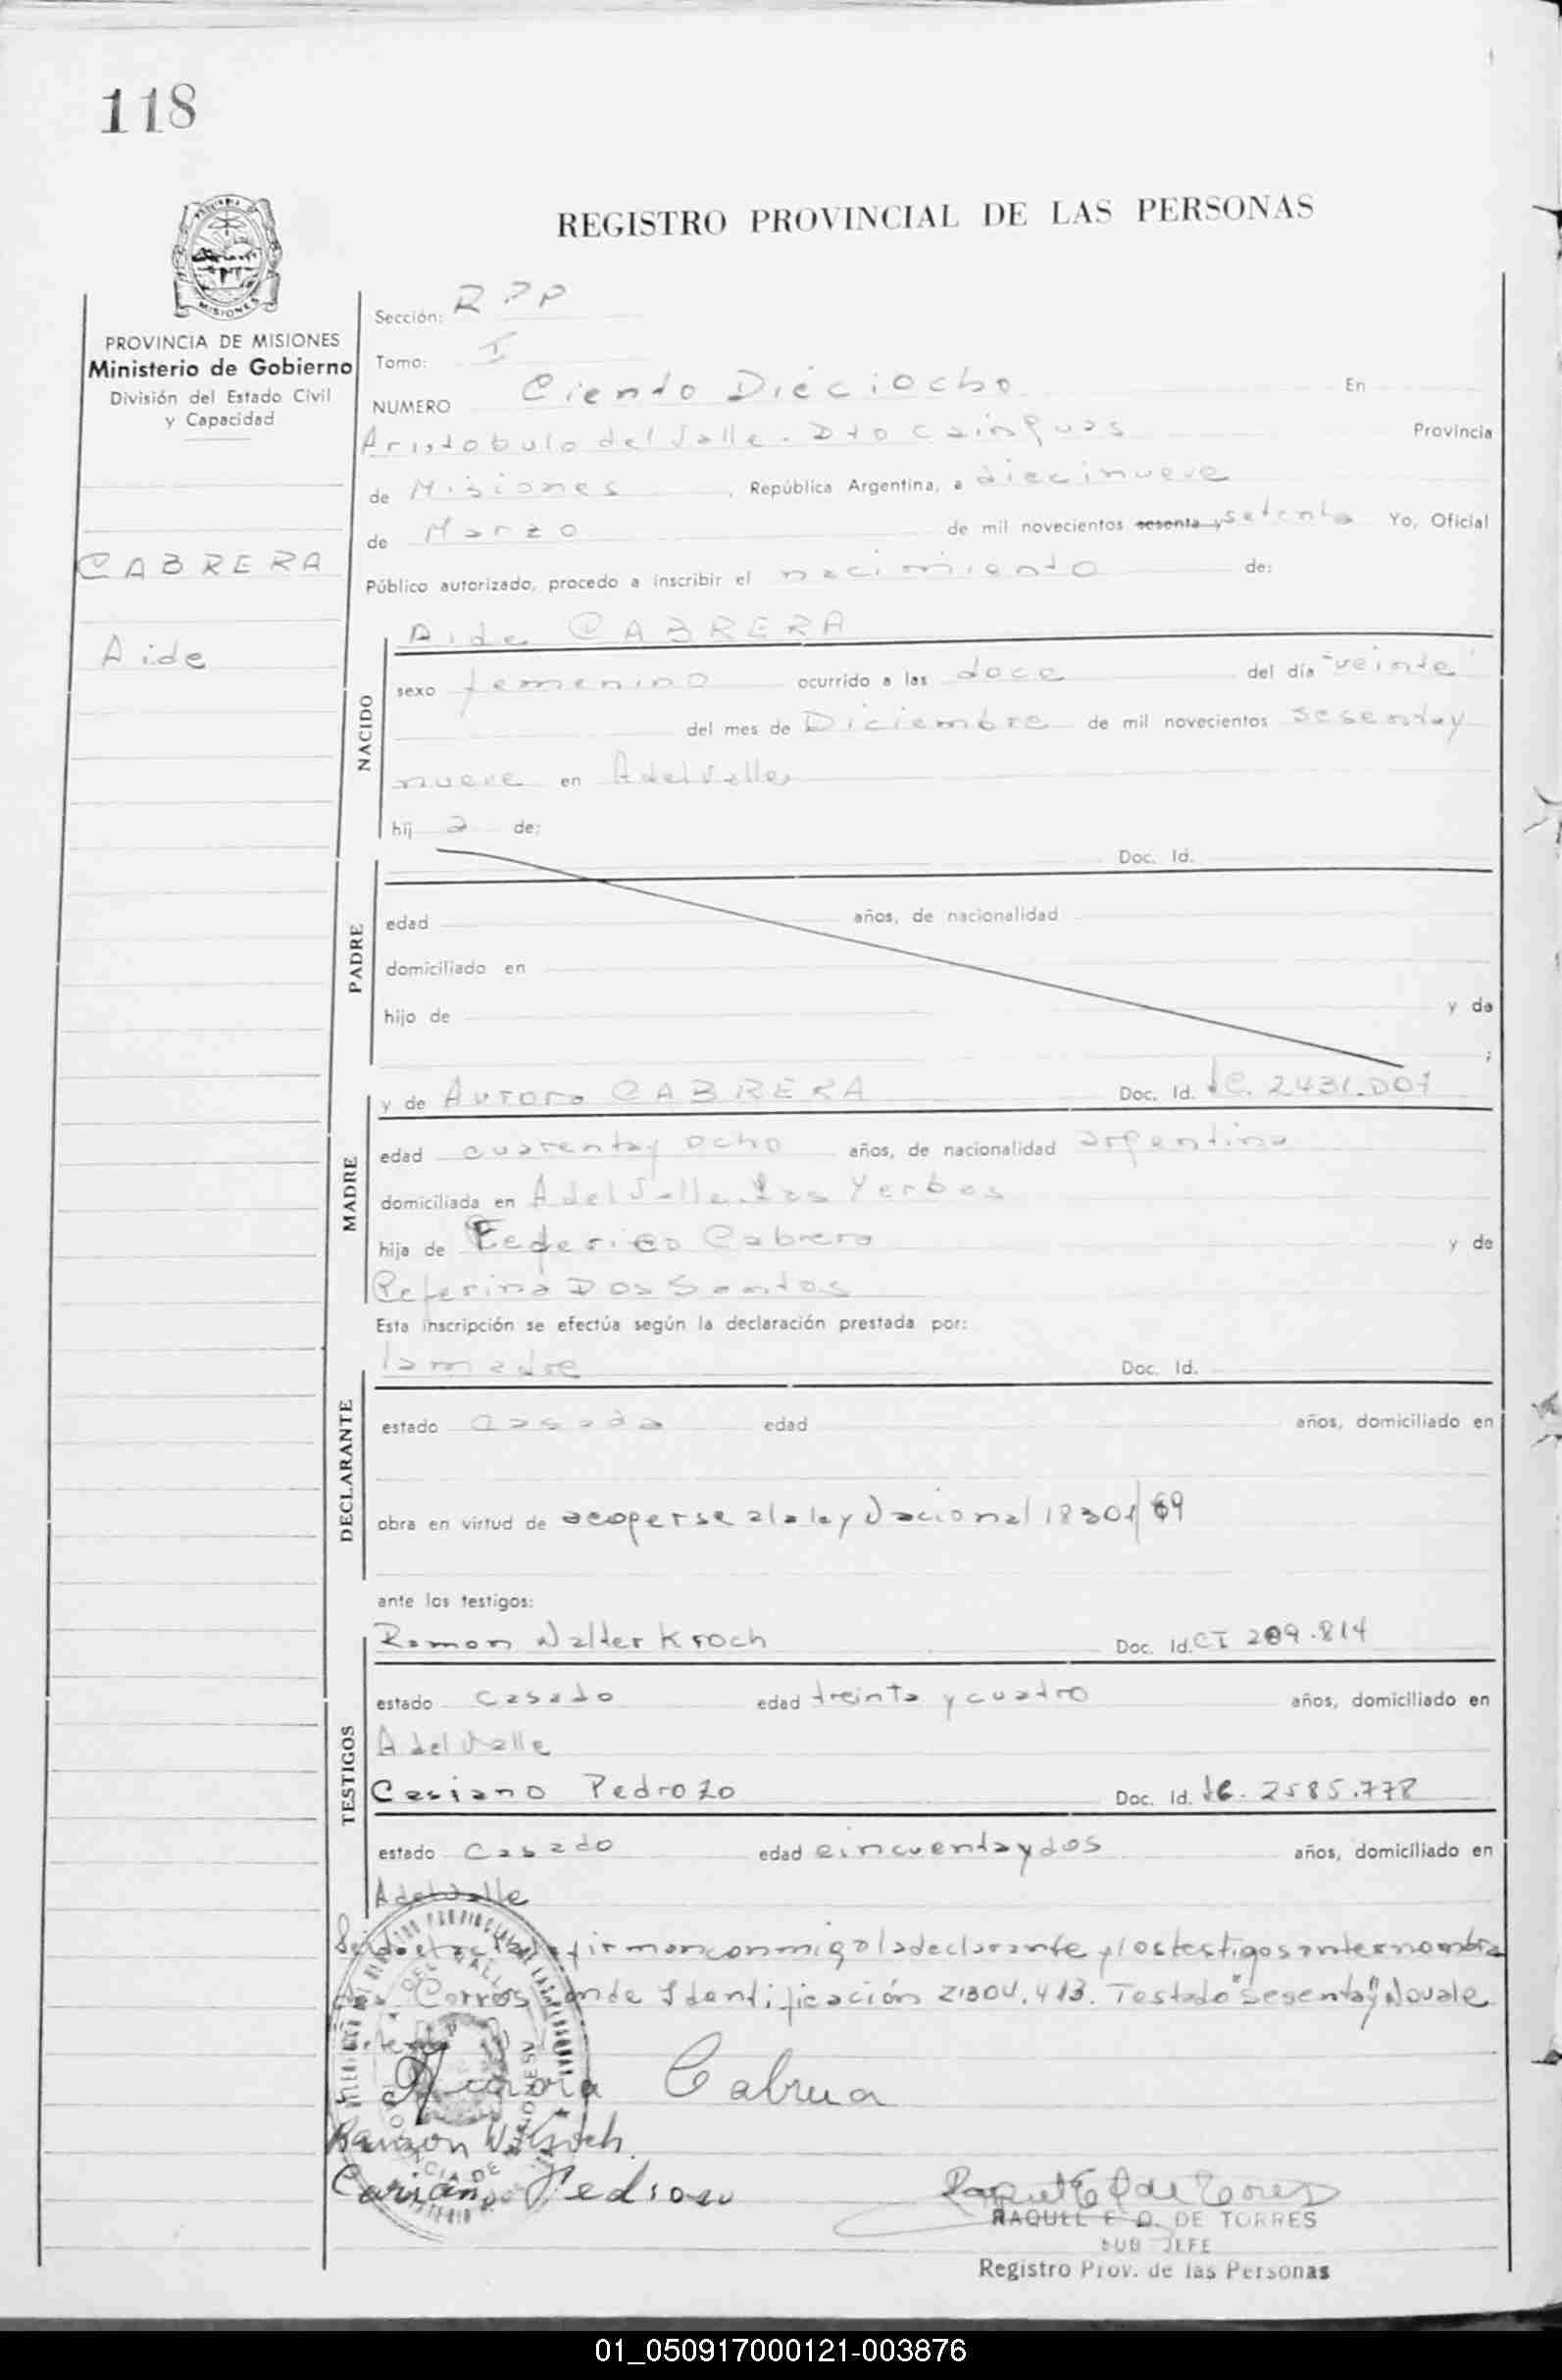 118
REGISTRO PROVINCIAL DE LAS PERSONAS
MISIONES
PROVINCIA DE MISIONES
Ministerio de Gobierno
División del Estado Civil
y Capacidad
CABRERA
Aide
Sección: R P P
Tomo: I
NUMERO Ciento Dieciocho En
Aristobulo del Valle. Dto Cainguas Provincia
de Misiones, República Argentina, a diecinueve
de Marzo de mil novecientos sesenta y setenta Yo, Oficial
Público autorizado, procedo a inscribir el nacimiento de:
Aide CABRERA
NACIDO
sexo femenino ocurrido a las doce del día veinte
del mes de Diciembre de mil novecientos sesenta y
nueve en A del Valle
hij a de:
Doc. Id.
PADRE
edad años, de nacionalidad
domiciliado en
hijo de y de
;
y de Aurora CABRERA Doc. Id. Lc. 2431.001
MADRE
edad cuarenta y ocho años, de nacionalidad argentina
domiciliada en A del Valle. Las Yerbas
hija de Federico Cabrera y de
Ceferina Dos Santos
Esta inscripción se efectúa según la declaración prestada por:
la madre Doc. Id.
DECLARANTE
estado casada edad años, domiciliado en
obra en virtud de acogerse a la ley Nacional 18301/69
ante los testigos:
Ramon Walter Kroch Doc. Id. CI 209.814
TESTIGOS
estado casado edad treinta y cuatro años, domiciliado en
A del Valle
Casiano Pedrozo Doc. Id. 2585.778
estado casado edad cincuenta y dos años, domiciliado en
A del Valle
Leida el acta la firman conmigo la declarante y los testigos antes nombra
dos Corresponde Identificación 21304.413. Testado "sesenta y" No vale
Aurora Cabrera
Ramon W Kroch
Casiano Pedroso
RAQUEL E. D. DE TORRES
SUB JEFE
Registro Prov. de las Personas
01_050917000121-003876